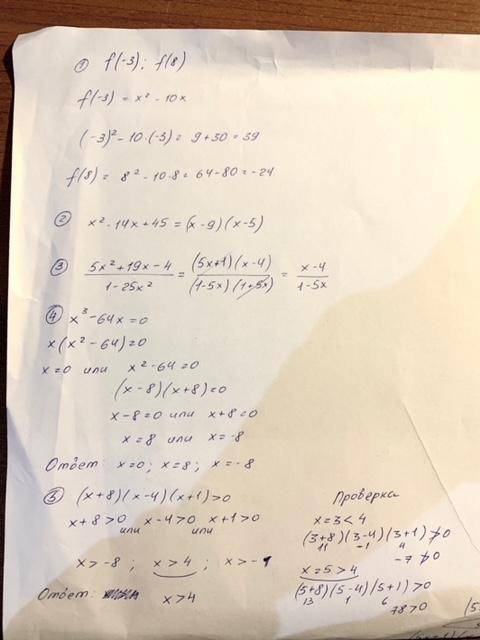 ① f(-3); f(8)
f(-3) = x² - 10x
(-3)² - 10·(-3) = 9+30 = 39
f(8) = 8² - 10·8 = 64-80 = -24
② x² - 14x + 45 = (x-9)(x-5)
③ (5x²+19x-4)/(1-25x²) = ((5x+1)(x-4))/((1-5x)(1+5x)) = (x-4)/(1-5x)
④ x³ - 64x = 0
x(x² - 64) = 0
x=0 или x² - 64 = 0
(x-8)(x+8)=0
x-8=0 или x+8=0
x=8 или x=-8
Ответ: x=0; x=8; x=-8
⑤ (x+8)(x-4)(x+1)>0
x+8>0 или x-4>0 или x+1>0
x>-8; x>4; x>-1
Ответ: x>4
Проверка
x=3<4
(3+8)(3-4)(3+1)≯0
11 -1 4
-7≯0
x=5>4
(5+8)(5-4)(5+1)>0
13 1 6
78>0
(5